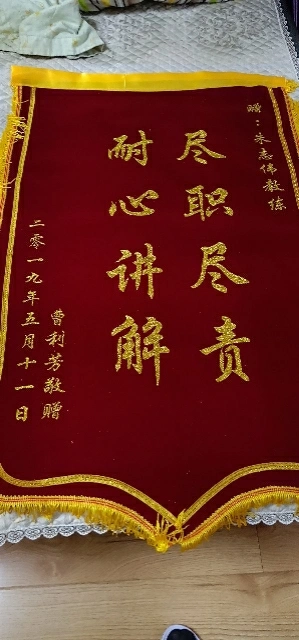 赠：朱志伟教练
尽职尽责
耐心讲解
曹利芳敬赠
二零一九年五月十一日